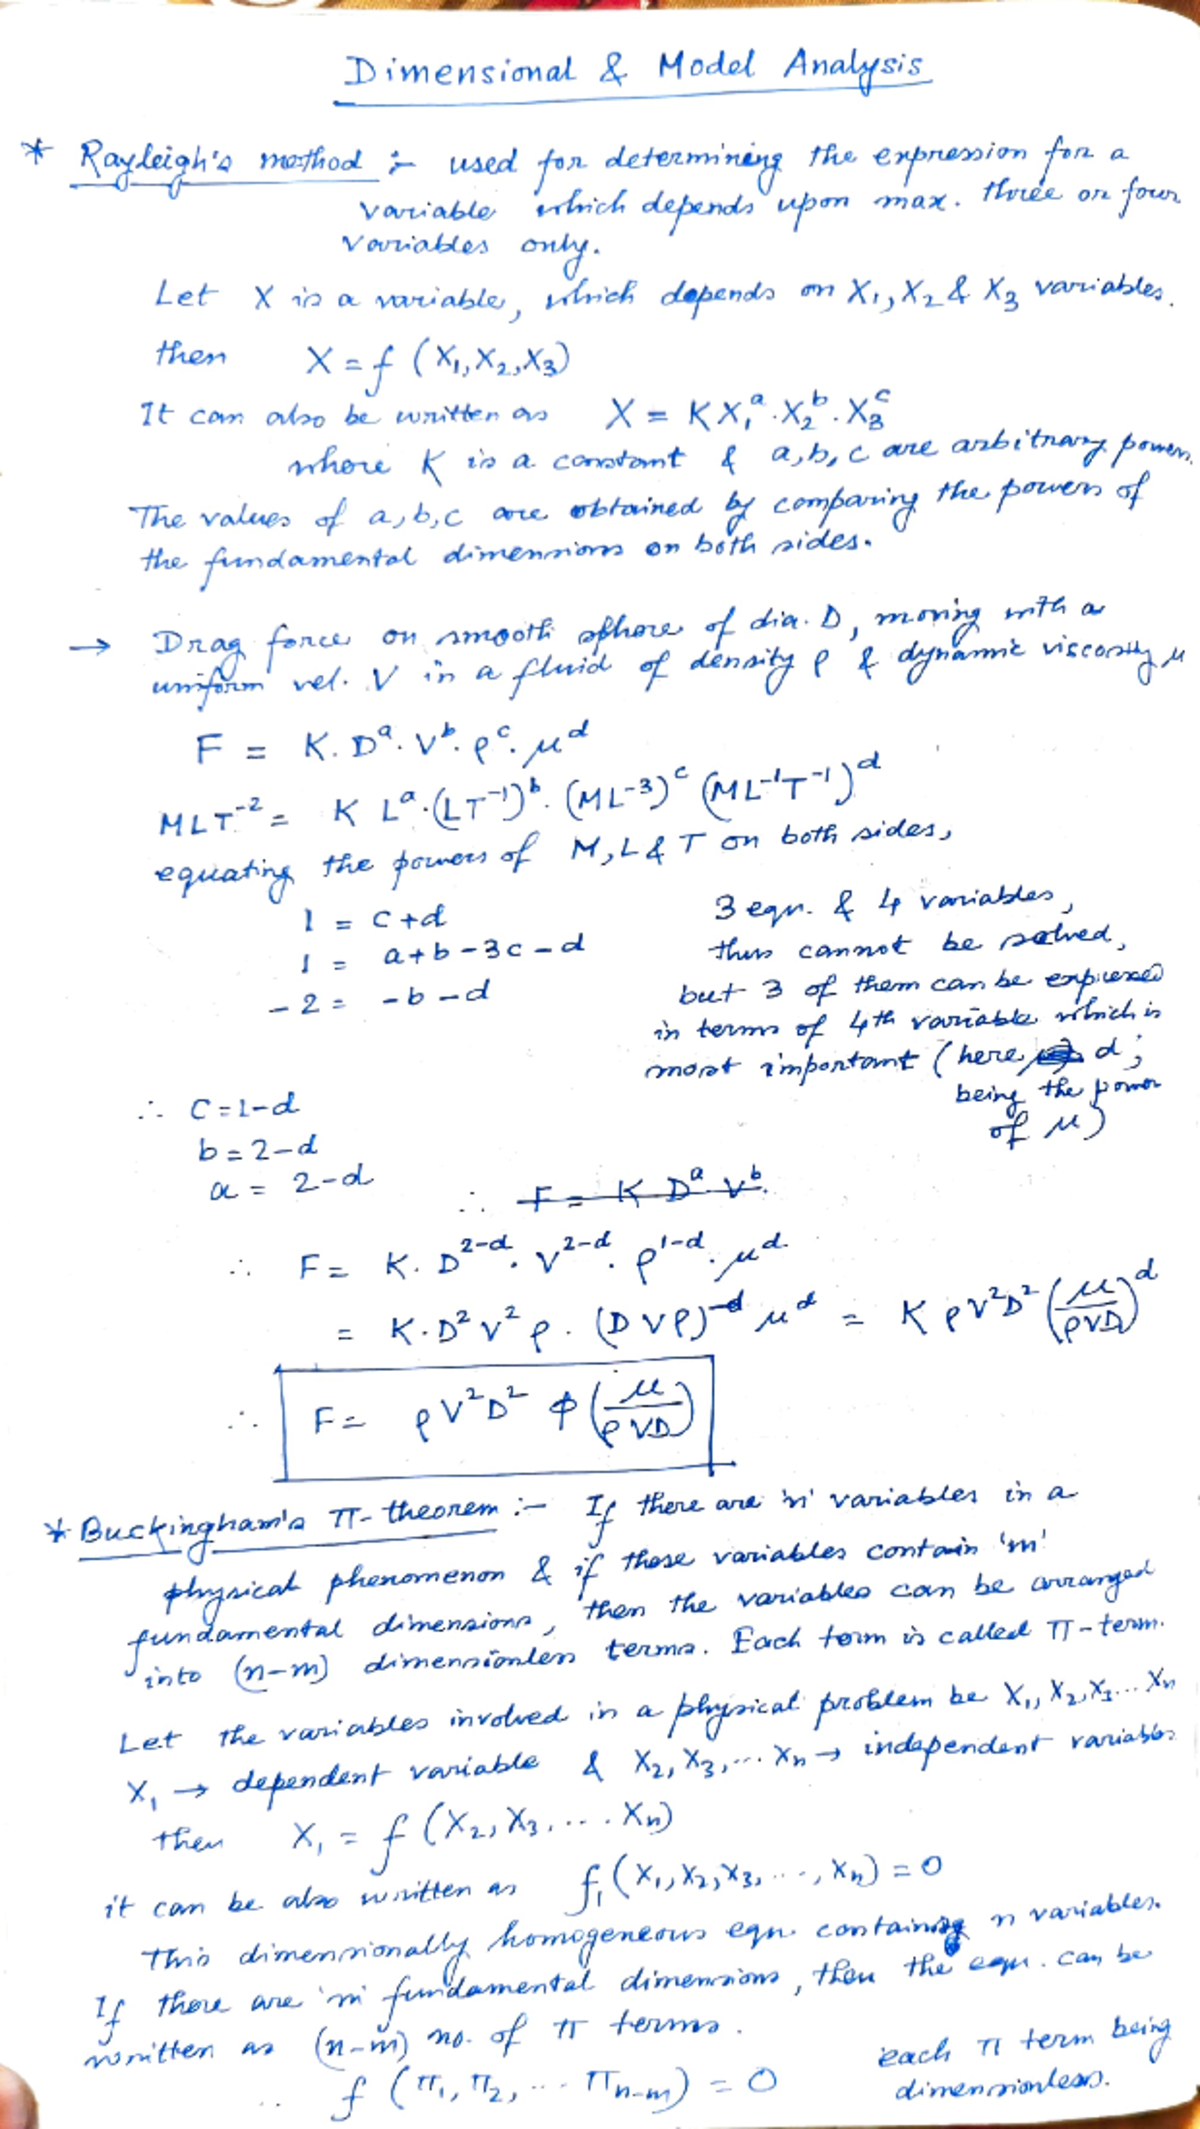 Dimensional & Model Analysis
* Rayleigh's method :- used for determining the expression for a
variable which depends upon max. three or four
variables only.
Let X is a variable, which depends on X₁, X₂ & X₃ variables.
then X = f (X₁, X₂, X₃)
It can also be written as X = K X₁ᵃ · X₂ᵇ · X₃ᶜ
where K is a constant & a, b, c are arbitrary powers.
The values of a, b, c are obtained by comparing the powers of
the fundamental dimensions on both sides.
→ Drag force on smooth sphere of dia. D, moving with a
uniform vel. V in a fluid of density ρ & dynamic viscosity μ
F = K. Dᵃ. Vᵇ. ρᶜ. μᵈ
MLT⁻² = K Lᵃ·(LT⁻¹)ᵇ. (ML⁻³)ᶜ (ML⁻¹T⁻¹)ᵈ
equating the powers of M, L & T on both sides,
1 = c+d
1 = a+b-3c-d
-2 = -b-d
3 eqn. & 4 variables,
thus cannot be solved,
but 3 of them can be expressed
in terms of 4th variable which is
most important (here d;
being the power
of μ)
∴ c = 1-d
b = 2-d
a = 2-d
∴ F = K Dᵃ Vᵇ.
∴ F = K. D²⁻ᵈ. V²⁻ᵈ. ρ¹⁻ᵈ. μᵈ
= K·D² V² ρ. (DVρ)⁻ᵈ μᵈ = K ρV²D² (μ/ρVD)ᵈ
∴ F = ρV²D² ϕ (μ/ρVD)
* Buckingham's π-theorem :- If there are 'n' variables in a
physical phenomenon & if these variables contain 'm'
fundamental dimensions, then the variables can be arranged
into (n-m) dimensionless terms. Each term is called π-term.
Let the variables involved in a physical problem be X₁, X₂, X₃... Xn
X₁ → dependent variable & X₂, X₃,... Xn → independent variables
then X₁ = f (X₂, X₃, .... Xn)
it can be also written as f₁ (X₁, X₂, X₃, ..., Xn) = 0
This dimensionally homogeneous eqn. containing n variables.
If there are 'm' fundamental dimensions, then the eqn. can be
written as (n-m) no. of π terms.
f (π₁, π₂, ... πn-m) = 0
each π term being
dimensionless.